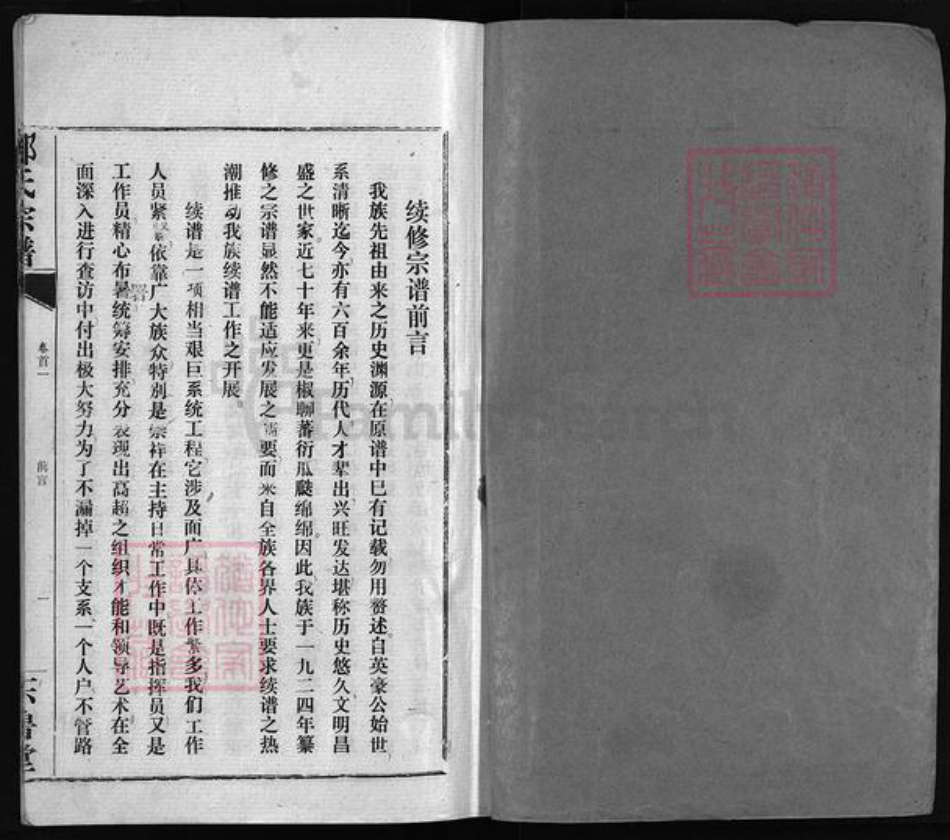 续修宗谱前言
我族先祖由来之历史渊源在原谱中已有记载勿用赘述自英豪公始世
系清晰迄今亦有六百余年历代人才辈出兴旺发达堪称历史悠久文明昌
盛之世家近七十年来更是椒聊蕃衍瓜瓞绵绵因此我族于一九二四年纂
修之宗谱显然不能适应发展之需要而来自全族各界人士要求续谱之热
潮推动我族续谱工作之开展
续谱是一项相当艰巨系统工程它涉及面广具体工作繁多我们工作
人员紧紧依靠广大族众特别是宗祥在主持日常工作中既是指挥员又是
工作员精心布暑署统筹安排充分表现出高超之组织才能和领导艺术在全
面深入进行查访中付出极大努力为了不漏掉一个支系一个人户不管路
氏宗谱
卷首一
前言
一